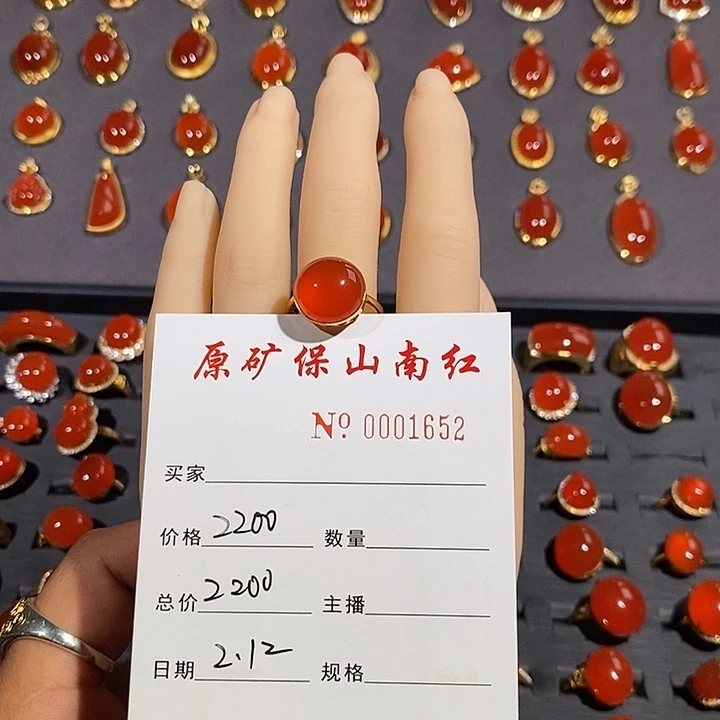 原矿保山南红
No 0001652
买家
价格 2200 数量
总价 2200 主播
日期 2.12 规格